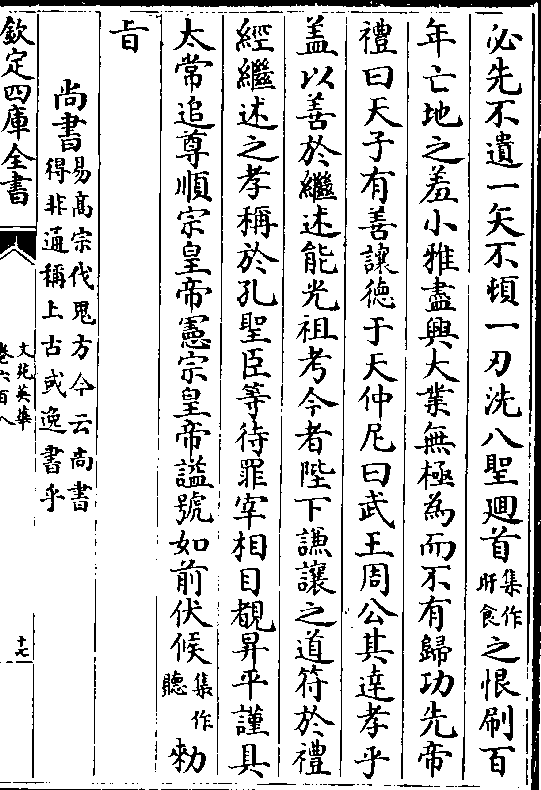 必先不遺一矢不頓一刃洗八聖廻首集作旰食之恨刷百
年亡地之羞小雅盡興大業無極為而不有歸功先帝
禮曰天子有善讓徳于天仲尼曰武王周公其達孝乎
盖以善於繼述能光祖考今者陛下謙讓之道符於禮
經繼述之孝稱於孔聖臣等待罪宰相目覩昇平謹具
太常追尊順宗皇帝憲宗皇帝謚號如前伏候集作聽勑
旨
尚書易髙宗伐鬼方今云尚書得非通稱上古或逸書乎
欽定四庫全書
文苑英華
卷六百八
十七